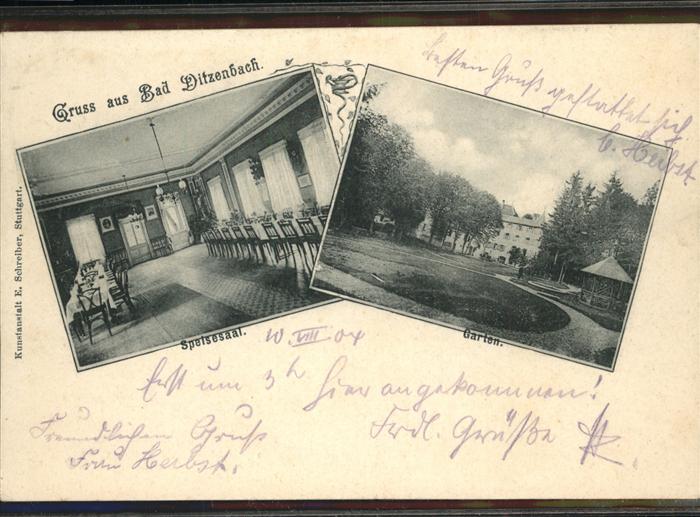 Gruss aus Bad Ditzenbach.
besten Gruß gestattet sich
C. Herbst
Kunstanstalt E. Schreiber, Stuttgart.
Speisesaal.
Garten.
10. VIII 04
Erst um 3h hier angekommen!
Freundlichen Gruß
Frau Herbst.
Frdl. Grüße